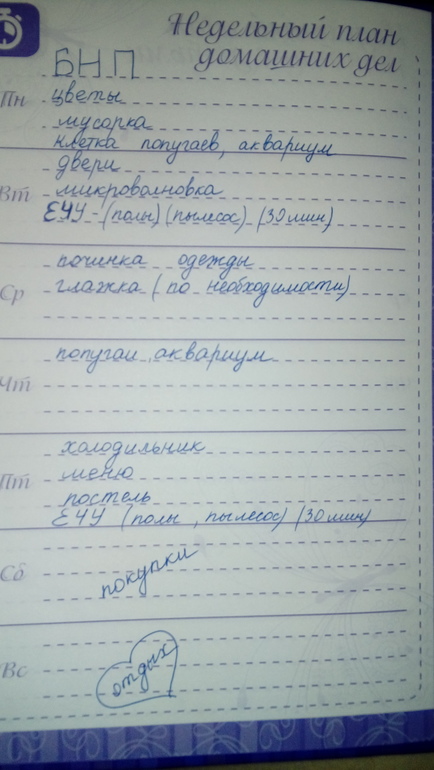 Недельный план
домашних дел
БНП
Пн цветы
мусорка
клетка попугаев, аквариум
двери
Вт микроволновка
ЕЧУ - (полы) (пылесос) (30 мин)
починка одежды
Ср глажка (по необходимости)
попугаи, аквариум
Чт
холодильник
Пт меню
постель
ЕЧУ (полы, пылесос) (30 мин)
Сб покупки
Вс отдых